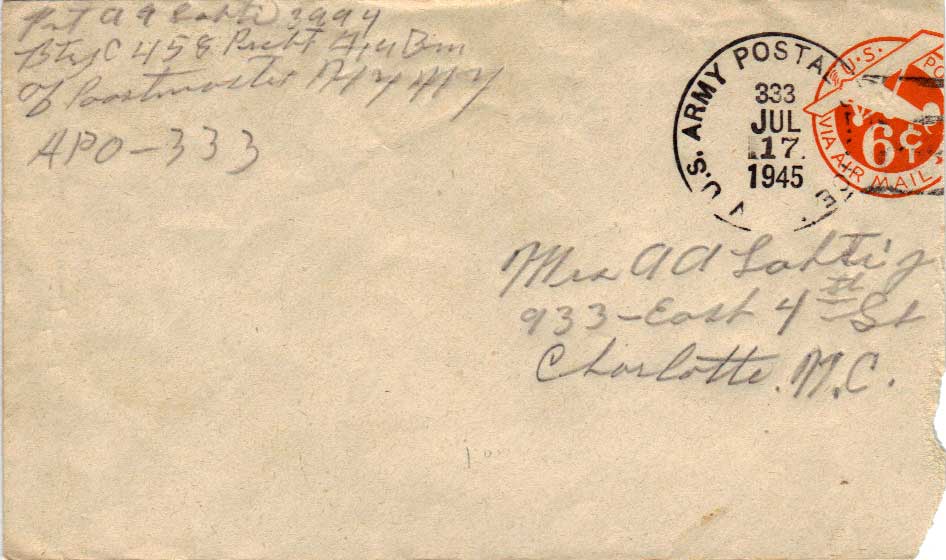 Pvt A A Lahti 3994
Btry C 458 Prcht F.A Bn
℅ Postmaster N Y N Y
APO-333
U.S. ARMY POSTAL
333
JUL
17
1945
U.S. PO
VIA AIR MAIL
6 CTS
Mrs A A Lahti
933-East 4th St
Charlotte. N.C.